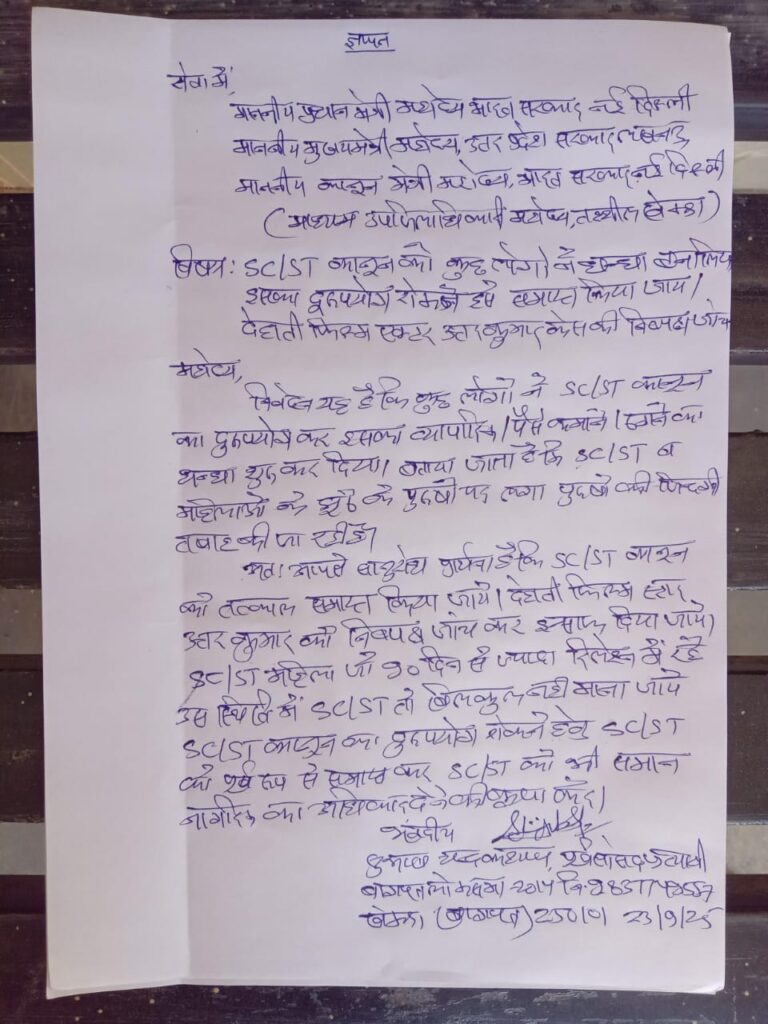 ज्ञापन
सेवा में,
माननीय प्रधान मंत्री महोदय भारत सरकार नई दिल्ली
माननीय मुख्यमंत्री महोदय, उत्तर प्रदेश सरकार लखनऊ
माननीय कानून मंत्री महोदय, भारत सरकार नई दिल्ली
(माध्यम उपजिलाधिकारी महोदय, तहसील खेकडा)
विषय: SC/ST कानून को कुछ लोगों ने धन्धा बना लिया
इसका दुरुपयोग रोकने इसे समाप्त किया जाय।
देहाती फिल्म एक्टर उत्तर कुमार केस की निष्पक्ष जांच
महोदय,
निवेदन यह है कि कुछ लोगों ने SC/ST कानून
का दुरुपयोग कर इसका व्यापारिक। पैसे कमाने। का
धन्धा शुरू कर दिया। बताया जाता है कि SC/ST व
महिलाओं के झूठे के पुरुषों पर लगा पुरुषों की जिन्दगी
तबाह की जा रही है।
अतः आपसे प्रार्थना है कि SC/ST कानून
को तत्काल समाप्त किया जाये। देहाती फिल्म स्टार
उत्तर कुमार की निष्पक्ष जांच कर इन्साफ दिया जाये।
SC/ST महिला जो १० दिन से ज्यादा रिलेशन में रहे
उस स्थिति में SC/ST तो बिलकुल नही माना जाये
SC/ST कानून का दुरुपयोग रोकने हेतु SC/ST
को पूर्ण रूप से समाप्त कर SC/ST को भी समान
नागरिक का अधिकार देने की कृपा करें।
भवदीय
सुभाष चन्द कश्यप, पूर्व प्रत्याशी
बागपत लोकसभा
खेकडा (बागपत) 250101 23/9/25